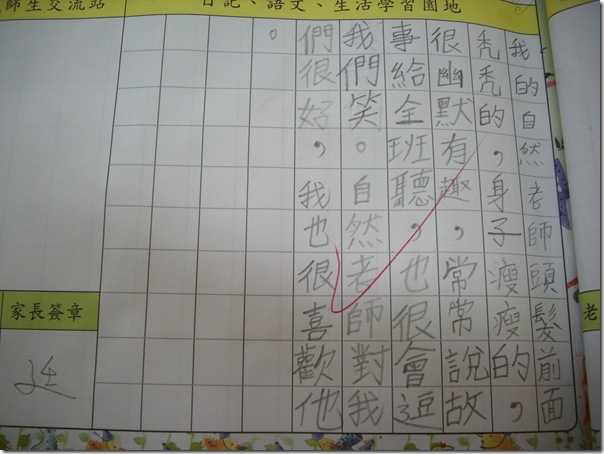 日記、語文、生活學習園地
我的自然老師頭髮前面
禿禿的，身子瘦瘦的，
很幽默有趣，常常說故
事給全班聽，也很會逗
我們笑。自然老師對我
們很好，我也很喜歡他
。
師生交流站
家長簽章
老